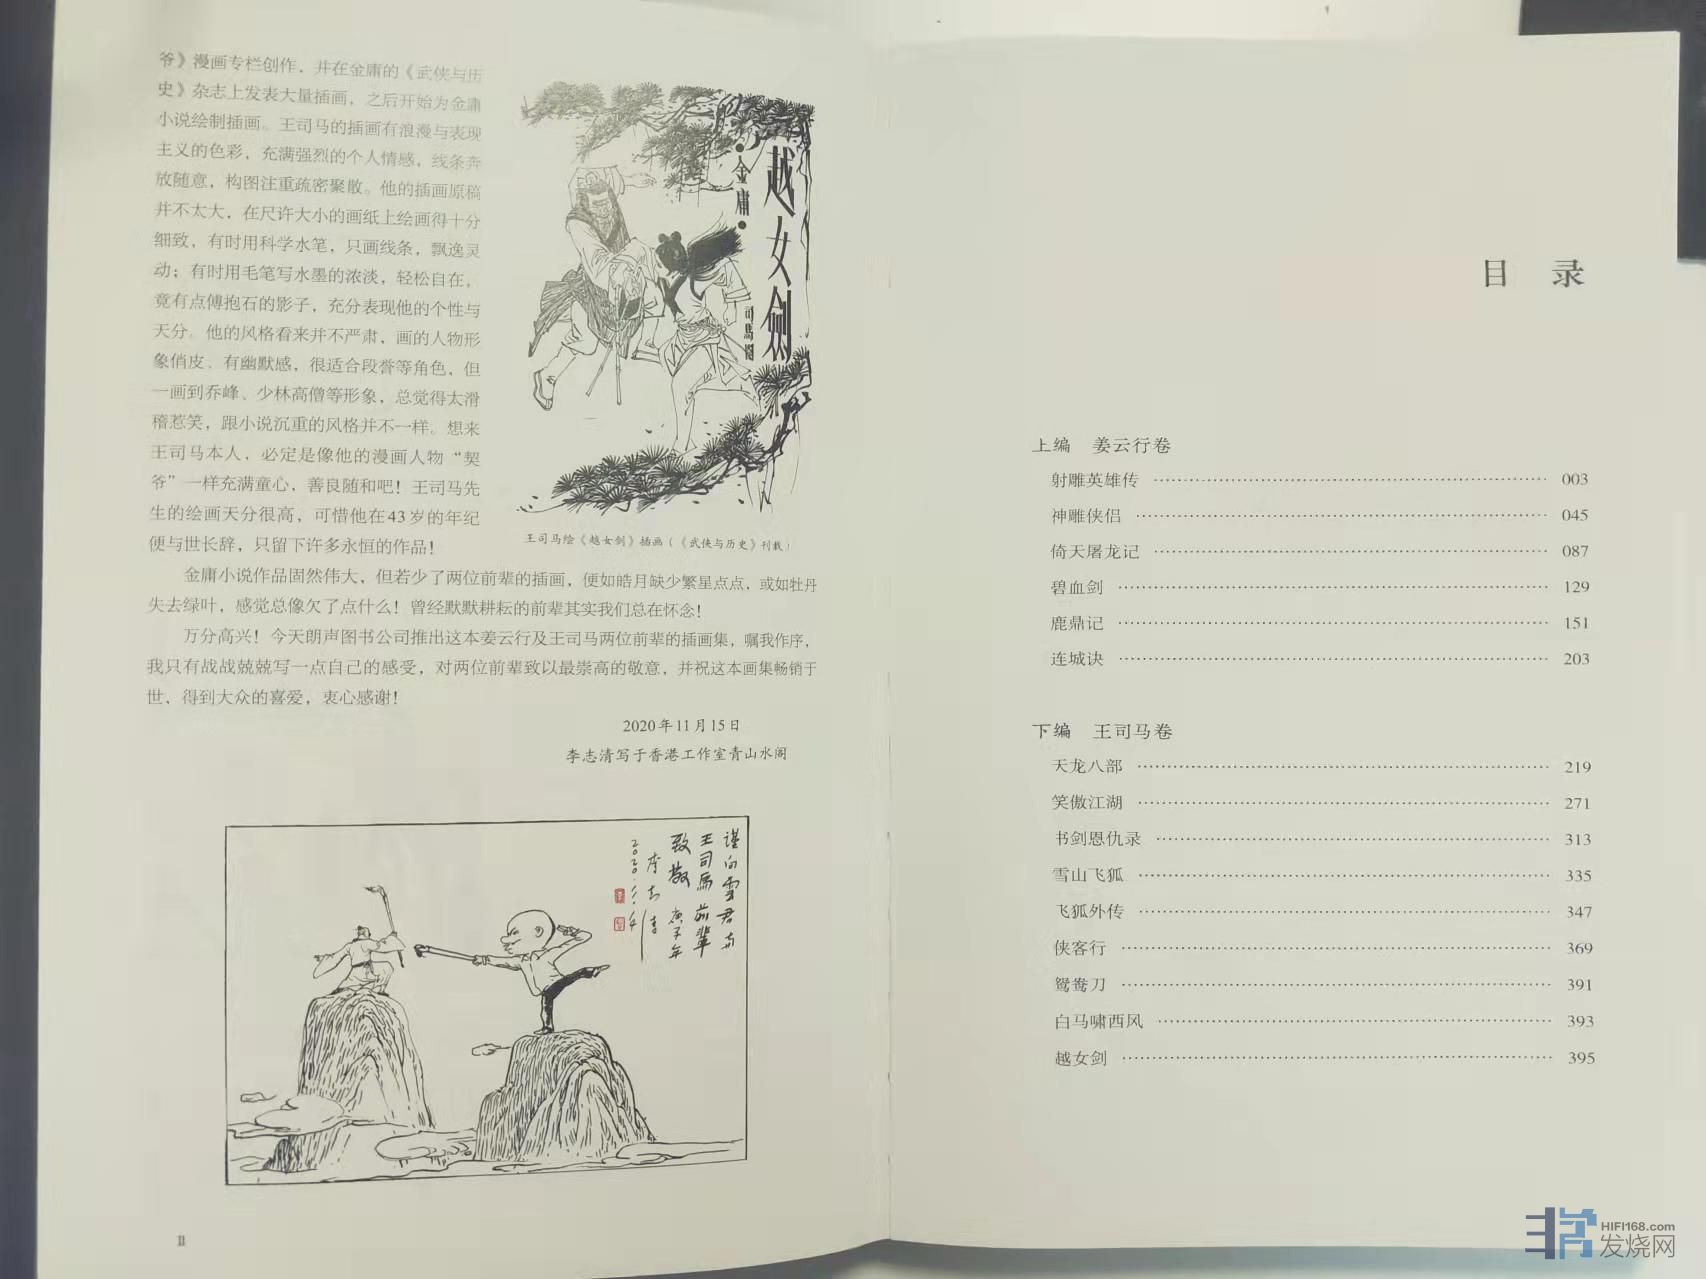 爷》漫画专栏创作，并在金庸的《武侠与历
史》杂志上发表大量插画，之后开始为金庸
小说绘制插画。王司马的插画有浪漫与表现
主义的色彩，充满强烈的个人情感，线条奔
放随意，构图注重疏密聚散。他的插画原稿
并不太大，在尺许大小的画纸上绘画得十分
细致，有时用科学水笔，只画线条，飘逸灵
动；有时用毛笔写水墨的浓淡，轻松自在，
竟有点傅抱石的影子，充分表现他的个性与
天分。他的风格看来并不严肃，画的人物形
象俏皮、有幽默感，很适合段誉等角色，但
一画到乔峰、少林高僧等形象，总觉得太滑
稽惹笑，跟小说沉重的风格并不一样。想来
王司马本人，必定是像他的漫画人物“契
爷”一样充满童心、善良随和吧！王司马先
生的绘画天分很高，可惜他在43岁的年纪
便与世长辞，只留下许多永恒的作品！
越女劍
·金庸·
司馬圖
王司马绘《越女剑》插画（《武侠与历史》刊载）
金庸小说作品固然伟大，但若少了两位前辈的插画，便如皓月缺少繁星点点，或如牡丹
失去绿叶，感觉总像欠了点什么！曾经默默耕耘的前辈其实我们总在怀念！
万分高兴！今天朗声图书公司推出这本姜云行及王司马两位前辈的插画集，嘱我作序，
我只有战战兢兢写一点自己的感受，对两位前辈致以最崇高的敬意，并祝这本画集畅销于
世，得到大众的喜爱，衷心感谢！
2020年11月15日
李志清写于香港工作室青山水阁
谨向雲君与
王司馬前輩
致敬 庚子年
李志清
II
目 录
上编 姜云行卷
射雕英雄传 003
神雕侠侣 045
倚天屠龙记 087
碧血剑 129
鹿鼎记 151
连城诀 203
下编 王司马卷
天龙八部 219
笑傲江湖 271
书剑恩仇录 313
雪山飞狐 335
飞狐外传 347
侠客行 369
鸳鸯刀 391
白马啸西风 393
越女剑 395
HIFI168.com
发烧网